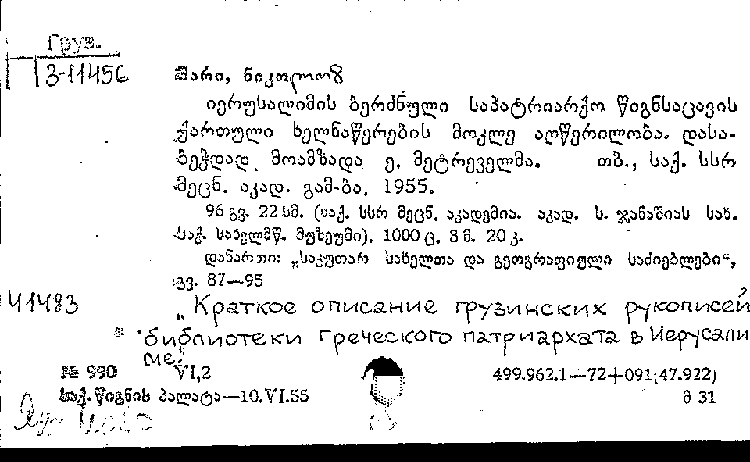 Груз.
З-11456
მარი, ნიკოლოზ
იერუსალიმის ბერძნული საპატრიარქო წიგნსაცავის
ქართული ხელნაწერების მოკლე აღწერილობა. დასა-
ბეჭდად მოამზადა ე. მეტრეველმა. თბ., საქ. სსრ
მეცნ. აკად. გამ-ბა, 1955.
96 გვ. 22 სმ. (საქ. სსრ მეცნ. აკადემია. აკად. ს. ჯანაშიას სახ.
საქ. სახელმწ. მუზეუმი). 1000 ც. 3 მ. 20 კ.
დანართი: „საკუთარ სახელთა და გეოგრაფიული საძიებლები“,
გვ. 87—95
41483
„Краткое описание грузинских рукописей
библиотеки греческого патриархата в Иерусали
ме.
№ 990 VI,2 499.962.1—72+091(47.922)
საქ. წიგნის პალატა—10.VI.55 მ 31